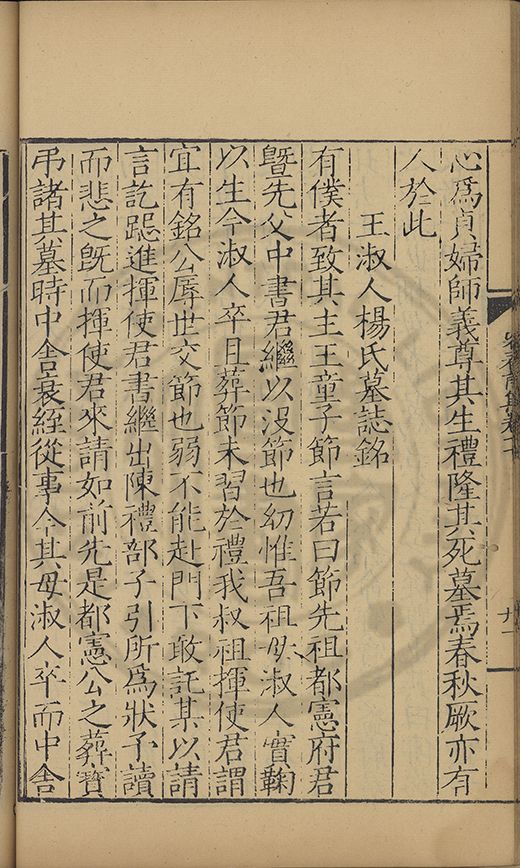 心爲貞婦師義尊其生禮隆其死墓焉春秋厥亦有
人於此
王淑人楊氏墓誌銘
有僕者致其主王童子節言若曰節先祖都憲府君
曁先父中書君繼以没節也幼惟吾祖母淑人實鞠
以生今淑人卒且葬節未習於禮我叔祖揮使君謂
宜有銘公辱世交節也弱不能赴門下敢託某以請
言訖跽進揮使君書繼出陳禮部子引所爲狀予讀
而悲之旣而揮使君來請如前先是都憲公之葬寶
弔諸其墓時中舍衰絰從事今其母淑人卒而中舍